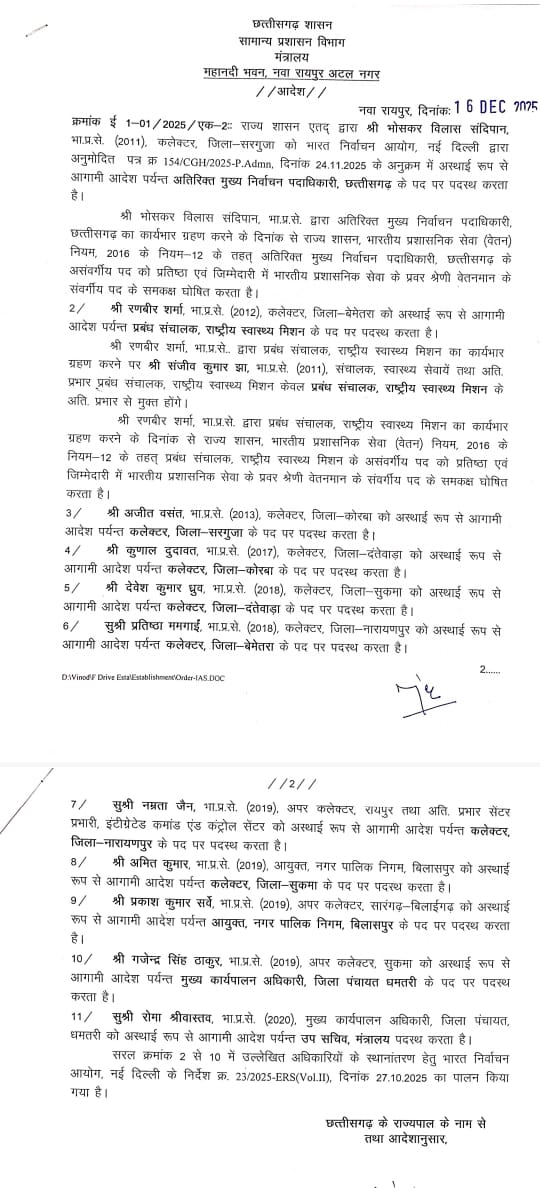 छत्तीसगढ़ शासन
सामान्य प्रशासन विभाग
मंत्रालय
महानदी भवन, नवा रायपुर अटल नगर
//आदेश//
नवा रायपुर, दिनांक: 16 DEC 2025
क्रमांक ई 1-01/2025/एक-2:: राज्य शासन एतद् द्वारा श्री भोसकर विलास संदिपान,
भा.प्र.से. (2011), कलेक्टर, जिला-सरगुजा को भारत निर्वाचन आयोग, नई दिल्ली द्वारा
अनुमोदित पत्र क्र 154/CGH/2025-P.Admn, दिनांक 24.11.2025 के अनुक्रम में अस्थाई रूप से
आगामी आदेश पर्यन्त अतिरिक्त मुख्य निर्वाचन पदाधिकारी, छत्तीसगढ़ के पद पर पदस्थ करता
है।
श्री भोसकर विलास संदिपान, भा.प्र.से. द्वारा अतिरिक्त मुख्य निर्वाचन पदाधिकारी,
छत्तीसगढ़ का कार्यभार ग्रहण करने के दिनांक से राज्य शासन, भारतीय प्रशासनिक सेवा (वेतन)
नियम, 2016 के नियम-12 के तहत् अतिरिक्त मुख्य निर्वाचन पदाधिकारी, छत्तीसगढ़ के
असंवर्गीय पद को प्रतिष्ठा एवं जिम्मेदारी में भारतीय प्रशासनिक सेवा के प्रवर श्रेणी वेतनमान के
संवर्गीय पद के समकक्ष घोषित करता है।
2/ श्री रणबीर शर्मा, भा.प्र.से. (2012), कलेक्टर, जिला-बेमेतरा को अस्थाई रूप से आगामी
आदेश पर्यन्त प्रबंध संचालक, राष्ट्रीय स्वास्थ्य मिशन के पद पर पदस्थ करता है।
श्री रणबीर शर्मा, भा.प्र.से.. द्वारा प्रबंध संचालक, राष्ट्रीय स्वास्थ्य मिशन का कार्यभार
ग्रहण करने पर श्री संजीव कुमार झा, भा.प्र.से. (2011), संचालक, स्वास्थ्य सेवायें तथा अति.
प्रभार प्रबंध संचालक, राष्ट्रीय स्वास्थ्य मिशन केवल प्रबंध संचालक, राष्ट्रीय स्वास्थ्य मिशन के
अति. प्रभार से मुक्त होंगे।
श्री रणबीर शर्मा, भा.प्र.से. द्वारा प्रबंध संचालक, राष्ट्रीय स्वास्थ्य मिशन का कार्यभार
ग्रहण करने के दिनांक से राज्य शासन, भारतीय प्रशासनिक सेवा (वेतन) नियम, 2016 के
नियम-12 के तहत् प्रबंध संचालक, राष्ट्रीय स्वास्थ्य मिशन के असंवर्गीय पद को प्रतिष्ठा एवं
जिम्मेदारी में भारतीय प्रशासनिक सेवा के प्रवर श्रेणी वेतनमान के संवर्गीय पद के समकक्ष घोषित
करता है।
3/ श्री अजीत वसंत, भा.प्र.से. (2013), कलेक्टर, जिला-कोरबा को अस्थाई रूप से आगामी
आदेश पर्यन्त कलेक्टर, जिला-सरगुजा के पद पर पदस्थ करता है।
4/ श्री कुणाल दुदावत, भा.प्र.से. (2017), कलेक्टर, जिला-दंतेवाड़ा को अस्थाई रूप से
आगामी आदेश पर्यन्त कलेक्टर, जिला-कोरबा के पद पर पदस्थ करता है।
5/ श्री देवेश कुमार ध्रुव, भा.प्र.से. (2018), कलेक्टर, जिला-सुकमा को अस्थाई रूप से
आगामी आदेश पर्यन्त कलेक्टर, जिला-दंतेवाड़ा के पद पर पदस्थ करता है।
6/ सुश्री प्रतिष्ठा ममगाईं, भा.प्र.से. (2018), कलेक्टर, जिला-नारायणपुर को अस्थाई रूप से
आगामी आदेश पर्यन्त कलेक्टर, जिला-बेमेतरा के पद पर पदस्थ करता है।
2......
D:\Vinod\F Drive Esta\Establishment\Order-IAS.DOC
//2//
7/ सुश्री नम्रता जैन, भा.प्र.से. (2019), अपर कलेक्टर, रायपुर तथा अति. प्रभार सेंटर
प्रभारी, इंटीग्रेटेड कमांड एंड कंट्रोल सेंटर को अस्थाई रूप से आगामी आदेश पर्यन्त कलेक्टर,
जिला-नारायणपुर के पद पर पदस्थ करता है।
8/ श्री अमित कुमार, भा.प्र.से. (2019), आयुक्त, नगर पालिक निगम, बिलासपुर को अस्थाई
रूप से आगामी आदेश पर्यन्त कलेक्टर, जिला-सुकमा के पद पर पदस्थ करता है।
9/ श्री प्रकाश कुमार सर्वे, भा.प्र.से. (2019), अपर कलेक्टर, सारंगढ़-बिलाईगढ़ को अस्थाई
रूप से आगामी आदेश पर्यन्त आयुक्त, नगर पालिक निगम, बिलासपुर के पद पर पदस्थ करता
है।
10/ श्री गजेन्द्र सिंह ठाकुर, भा.प्र.से. (2019), अपर कलेक्टर, सुकमा को अस्थाई रूप से
आगामी आदेश पर्यन्त मुख्य कार्यपालन अधिकारी, जिला पंचायत धमतरी के पद पर पदस्थ
करता है।
11/ सुश्री रोमा श्रीवास्तव, भा.प्र.से. (2020), मुख्य कार्यपालन अधिकारी, जिला पंचायत,
धमतरी को अस्थाई रूप से आगामी आदेश पर्यन्त उप सचिव, मंत्रालय पदस्थ करता है।
सरल क्रमांक 2 से 10 में उल्लेखित अधिकारियों के स्थानांतरण हेतु भारत निर्वाचन
आयोग, नई दिल्ली के निर्देश क्र. 23/2025-ERS(Vol.II), दिनांक 27.10.2025 का पालन किया
गया है।
छत्तीसगढ़ के राज्यपाल के नाम से
तथा आदेशानुसार,